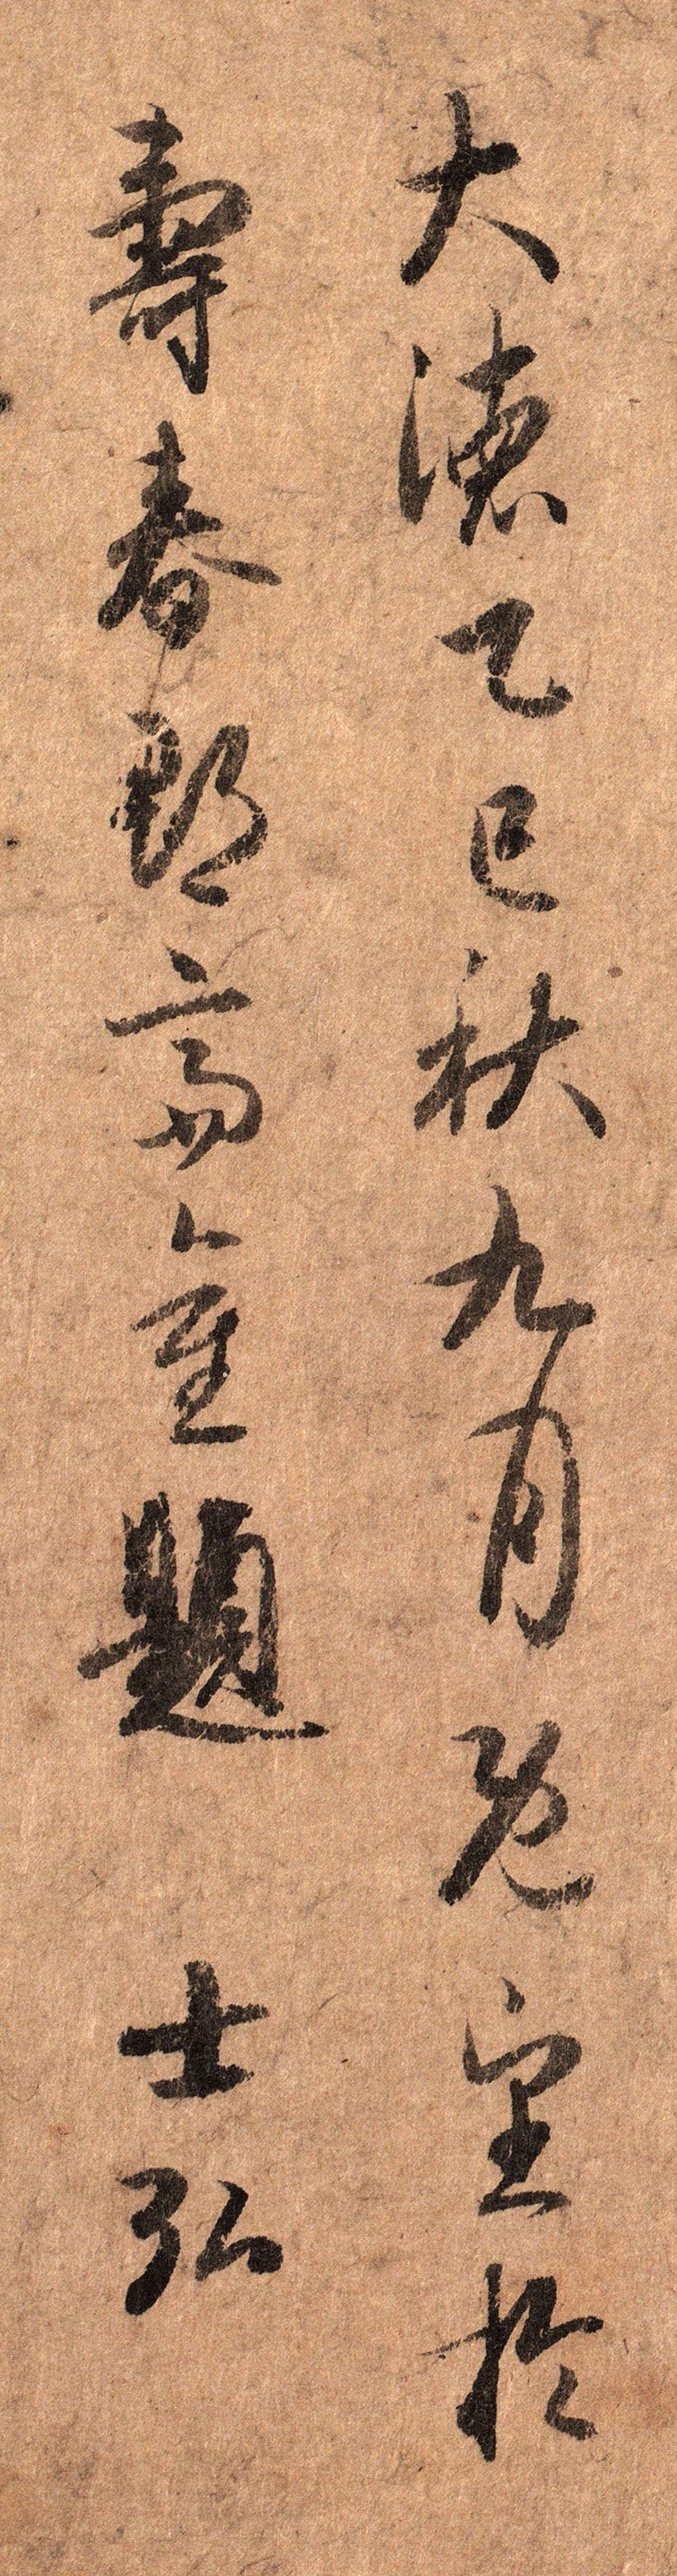 大德乙巳秋九月既望於
壽春郡齋重題 士弘